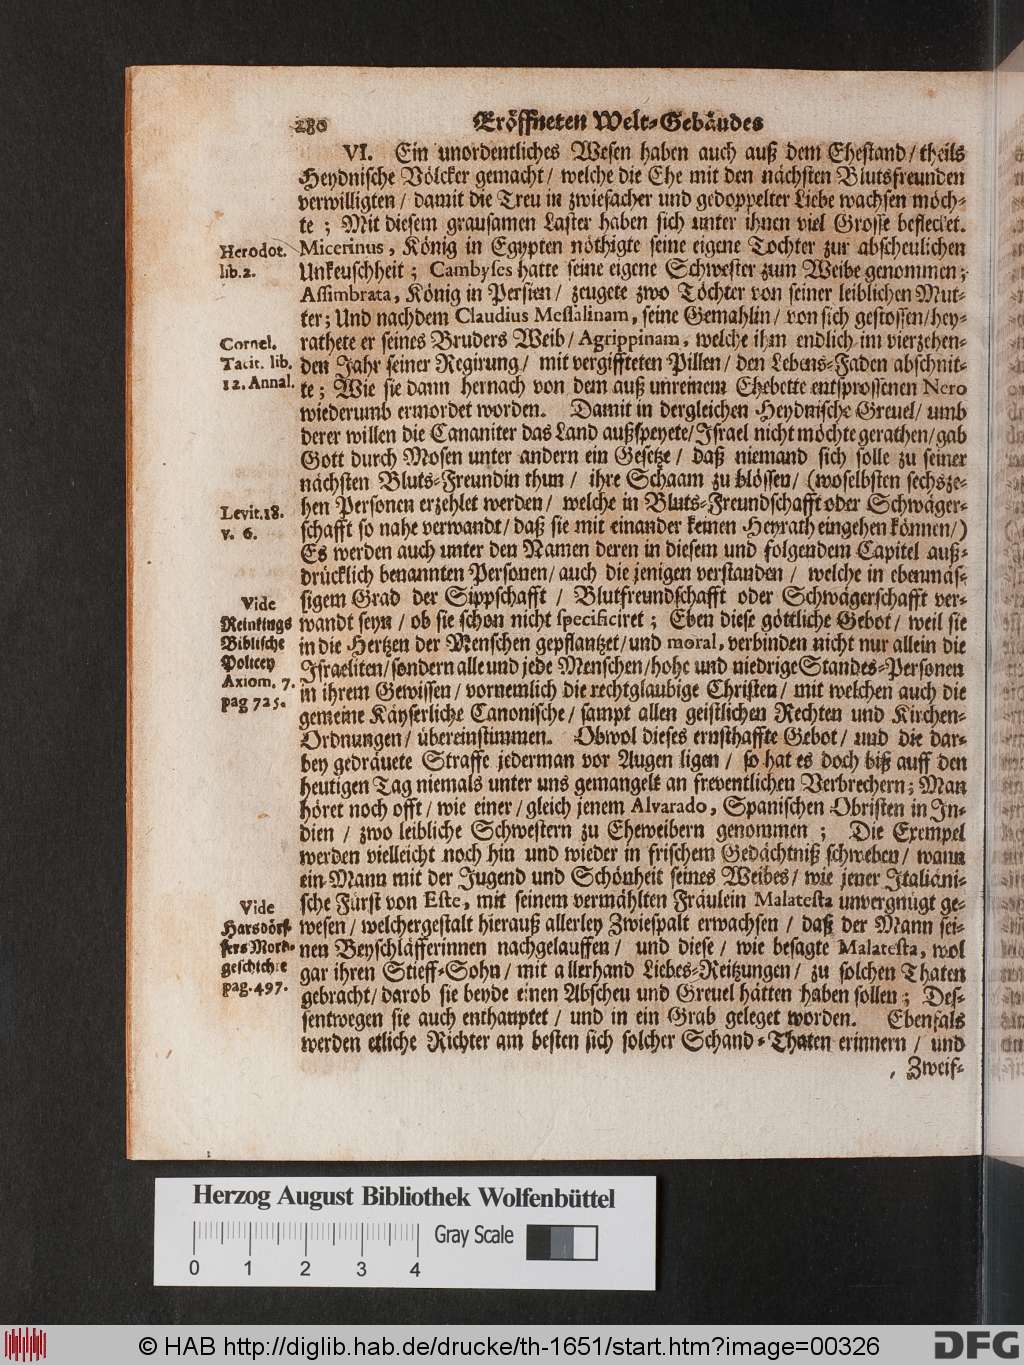 280
Eröffneten Welt-Gebäudes
VI. Ein unordentliches Wesen haben auch auß dem Ehestand / theils
Heydnische Völcker gemacht / welche die Ehe mit den nächsten Blutsfreunden
verwilligten / damit die Treu in zwiefacher und gedoppelter Liebe wachsen möch-
te ; Mit diesem grausamen Laster haben sich unter ihnen viel Grosse beflecket.
Herodot.
lib. 2.
Micerinus, König in Egypten nöthigte seine eigene Tochter zur abscheulichen
Unkeuschheit ; Cambyses hatte seine eigene Schwester zum Weibe genommen ;
Assimbrata, König in Persien / zeugete zwo Töchter von seiner leiblichen Mut-
ter ; Und nachdem Claudius Messalinam, seine Gemahlin / von sich gestossen / hey-
Cornel.
Tacit. lib.
12. Annal.
rathete er seines Bruders Weib / Agrippinam, welche ihm endlich im vierzehen-
den Jahr seiner Regirung / mit vergiffteten Pillen / den Lebens-Faden abschnit-
te ; Wie sie dann hernach von dem auß unreinem Ehebette entsprossenen Nero
wiederumb ermordet worden. Damit in dergleichen Heydnische Greuel / umb
derer willen die Cananiter das Land außspeyete / Israel nicht möchte gerathen / gab
Gott durch Mosen unter andern ein Gesetze / daß niemand sich solle zu seiner
nächsten Bluts-Freundin thun / ihre Schaam zu blössen / (woselbsten sechsze-
Levit. 18.
v. 6.
hen Personen erzehlet werden / welche in Bluts-Freundschafft oder Schwäger-
schafft so nahe verwandt / daß sie mit einander keinen Heyrath eingehen können /)
Es werden auch unter den Namen deren in diesem und folgendem Capitel auß-
drücklich benannten Personen / auch die jenigen verstanden / welche in ebenmäs-
sigem Grad der Sippschafft / Blutfreundschafft oder Schwägerschafft ver-
Vide
Reinkings
Biblische
Policey
Axiom. 7.
pag 725.
wandt seyn / ob sie schon nicht specificiret ; Eben diese göttliche Gebot / weil sie
in die Hertzen der Menschen gepflantzet / und moral, verbinden nicht nur allein die
Israeliten / sondern alle und jede Menschen / hohe und niedrige Standes-Personen
in ihrem Gewissen / vornemlich die rechtglaubige Christen / mit welchen auch die
gemeine Käyserliche Canonische / sampt allen geistlichen Rechten und Kirchen-
Ordnungen / übereinstimmen. Obwol dieses ernsthaffte Gebot / und die dar-
bey gedräuete Straffe jederman vor Augen ligen / so hat es doch biß auff den
heutigen Tag niemals unter uns gemangelt an freventlichen Verbrechern ; Man
höret noch offt / wie einer / gleich jenem Alvarado, Spanischen Obristen in In-
dien / zwo leibliche Schwestern zu Eheweibern genommen ; Die Exempel
werden vielleicht noch hin und wieder in frischem Gedächtniß schweben / wann
ein Mann mit der Jugend und Schönheit seines Weibes / wie jener Italiäni-
sche Fürst von Este, mit seinem vermählten Fräulein Malatesta unvergnügt ge-
Vide
Harsdörf-
fers Mord-
geschichte
pag. 497.
wesen / welchergestalt hierauß allerley Zwiespalt erwachsen / daß der Mann sei-
nen Beyschläfferinnen nachgelauffen / und diese / wie besagte Malatesta, wol
gar ihren Stieff-Sohn / mit allerhand Liebes-Reitzungen / zu solchen Thaten
gebracht / darob sie beyde einen Abscheu und Greuel hätten haben sollen ; Des-
sentwegen sie auch enthauptet / und in ein Grab geleget worden. Ebenfals
werden etliche Richter am besten sich solcher Schand-Thaten erinnern / und
Zweif-
Herzog August Bibliothek Wolfenbüttel
Gray Scale
0 1 2 3 4
© HAB http://diglib.hab.de/drucke/th-1651/start.htm?image=00326
DFG